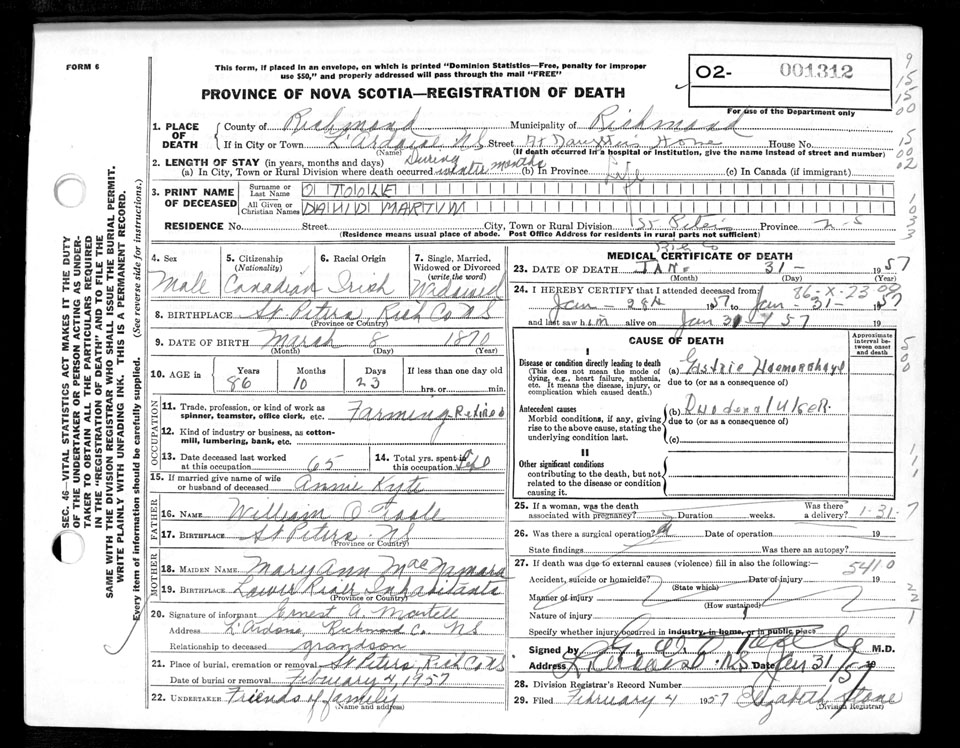 FORM 6
This form, if placed in an envelope, on which is printed "Dominion Statistics—Free, penalty for improper
use $50," and properly addressed will pass through the mail "FREE"
O2- 001312
For use of the Department only
PROVINCE OF NOVA SCOTIA—REGISTRATION OF DEATH
1. PLACE OF DEATH
County of Richmond Municipality of Richmond
If in City or Town L'Ardoise N.S Street At Daughters Home House No.
(Name) (If death occurred in a hospital or institution, give the name instead of street and number)
2. LENGTH OF STAY (in years, months and days) During
(a) In City, Town or Rural Division where death occurred winter months (b) In Province Life (c) In Canada (if immigrant)
3. PRINT NAME OF DECEASED
Surname or Last Name O TOOLE
All Given or Christian Names DAVID MARTIN
RESIDENCE No. Street City, Town or Rural Division St. Peters Province N-S
(Residence means usual place of abode. Post Office Address for residents in rural parts not sufficient)
Rich Co
4. Sex
Male
5. Citizenship
(Nationality)
Canadian
6. Racial Origin
Irish
7. Single, Married,
Widowed or Divorced
(write the word)
Widowed
8. BIRTHPLACE St Peters, Rich Co N S
(Province or Country)
9. DATE OF BIRTH March 8 1870
(Month) (Day) (Year)
10. AGE in Years Months Days If less than one day old
86 10 23 hrs. or min.
OCCUPATION
11. Trade, profession, or kind of work as
spinner, teamster, office clerk, etc. Farming Retired
12. Kind of industry or business, as cotton-
mill, lumbering, bank, etc.
13. Date deceased last worked
at this occupation 65
14. Total yrs. spent in
this occupation Life
15. If married give name of wife
or husband of deceased Annie Kyte
FATHER
16. NAME William O Toole
17. BIRTHPLACE St Peters N S
(Province or Country)
MOTHER
18. MAIDEN NAME Mary Ann MacNamara
19. BIRTHPLACE Lower River Inhabitants
(Province or Country)
20. Signature of informant Ernest A. Martell
Address L'Ardoise, Richmond Co. NS
Relationship to deceased grandson
21. Place of burial, cremation or removal St Peters, Rich Co N S
Date of burial or removal February 4, 1957
22. UNDERTAKER Friends of family
(Name and address)
MEDICAL CERTIFICATE OF DEATH
23. DATE OF DEATH JAN- 31- 1957
(Month) (Day) (Year)
86-X-23 09
24. I HEREBY CERTIFY that I attended deceased from
Jan- 28th 1957 to Jan- 31- 1957
and last saw him alive on Jan 31 57 19
CAUSE OF DEATH
Approximate
interval be-
tween onset
and death
I
Disease or condition directly leading to death
(This does not mean the mode of
dying, e.g., heart failure, asthenia,
etc. It means the disease, injury, or
complication which caused death.)
(a) Gastric Haemorrhage
due to (or as a consequence of)
Antecedent causes
Morbid conditions, if any, giving
rise to the above cause, stating the
underlying condition last.
(b) Duodenal Ulcer.
due to (or as a consequence of)
(c)
II
Other significant conditions
contributing to the death, but not
related to the disease or condition
causing it.
25. If a woman, was the death
associated with pregnancy? Duration weeks.
Was there
a delivery?
1-31-7
26. Was there a surgical operation? Date of operation 19
State findings Was there an autopsy?
27. If death was due to external causes (violence) fill in also the following:—
5410
Accident, suicide or homicide? Date of injury 19
(State which)
Manner of injury
(How sustained)
Nature of injury
Specify whether injury occurred in industry, in home, or in public place
Signed by M.D.
Address L'Ardoise N.S Date Jan 31/57 19
28. Division Registrar's Record Number
29. Filed February 4 1957 Elizabeth Stone
(Division Registrar)
SEC. 46—VITAL STATISTICS ACT MAKES IT THE DUTY
OF THE UNDERTAKER OR PERSON ACTING AS UNDER-
TAKER TO OBTAIN ALL THE PARTICULARS REQUIRED
IN THE "REGISTRATION OF DEATH" AND TO FILE THE
SAME WITH THE DIVISION REGISTRAR WHO SHALL ISSUE THE BURIAL PERMIT.
WRITE PLAINLY WITH UNFADING INK. THIS IS A PERMANENT RECORD.
Every item of information should be carefully supplied. (See reverse side for instructions.)